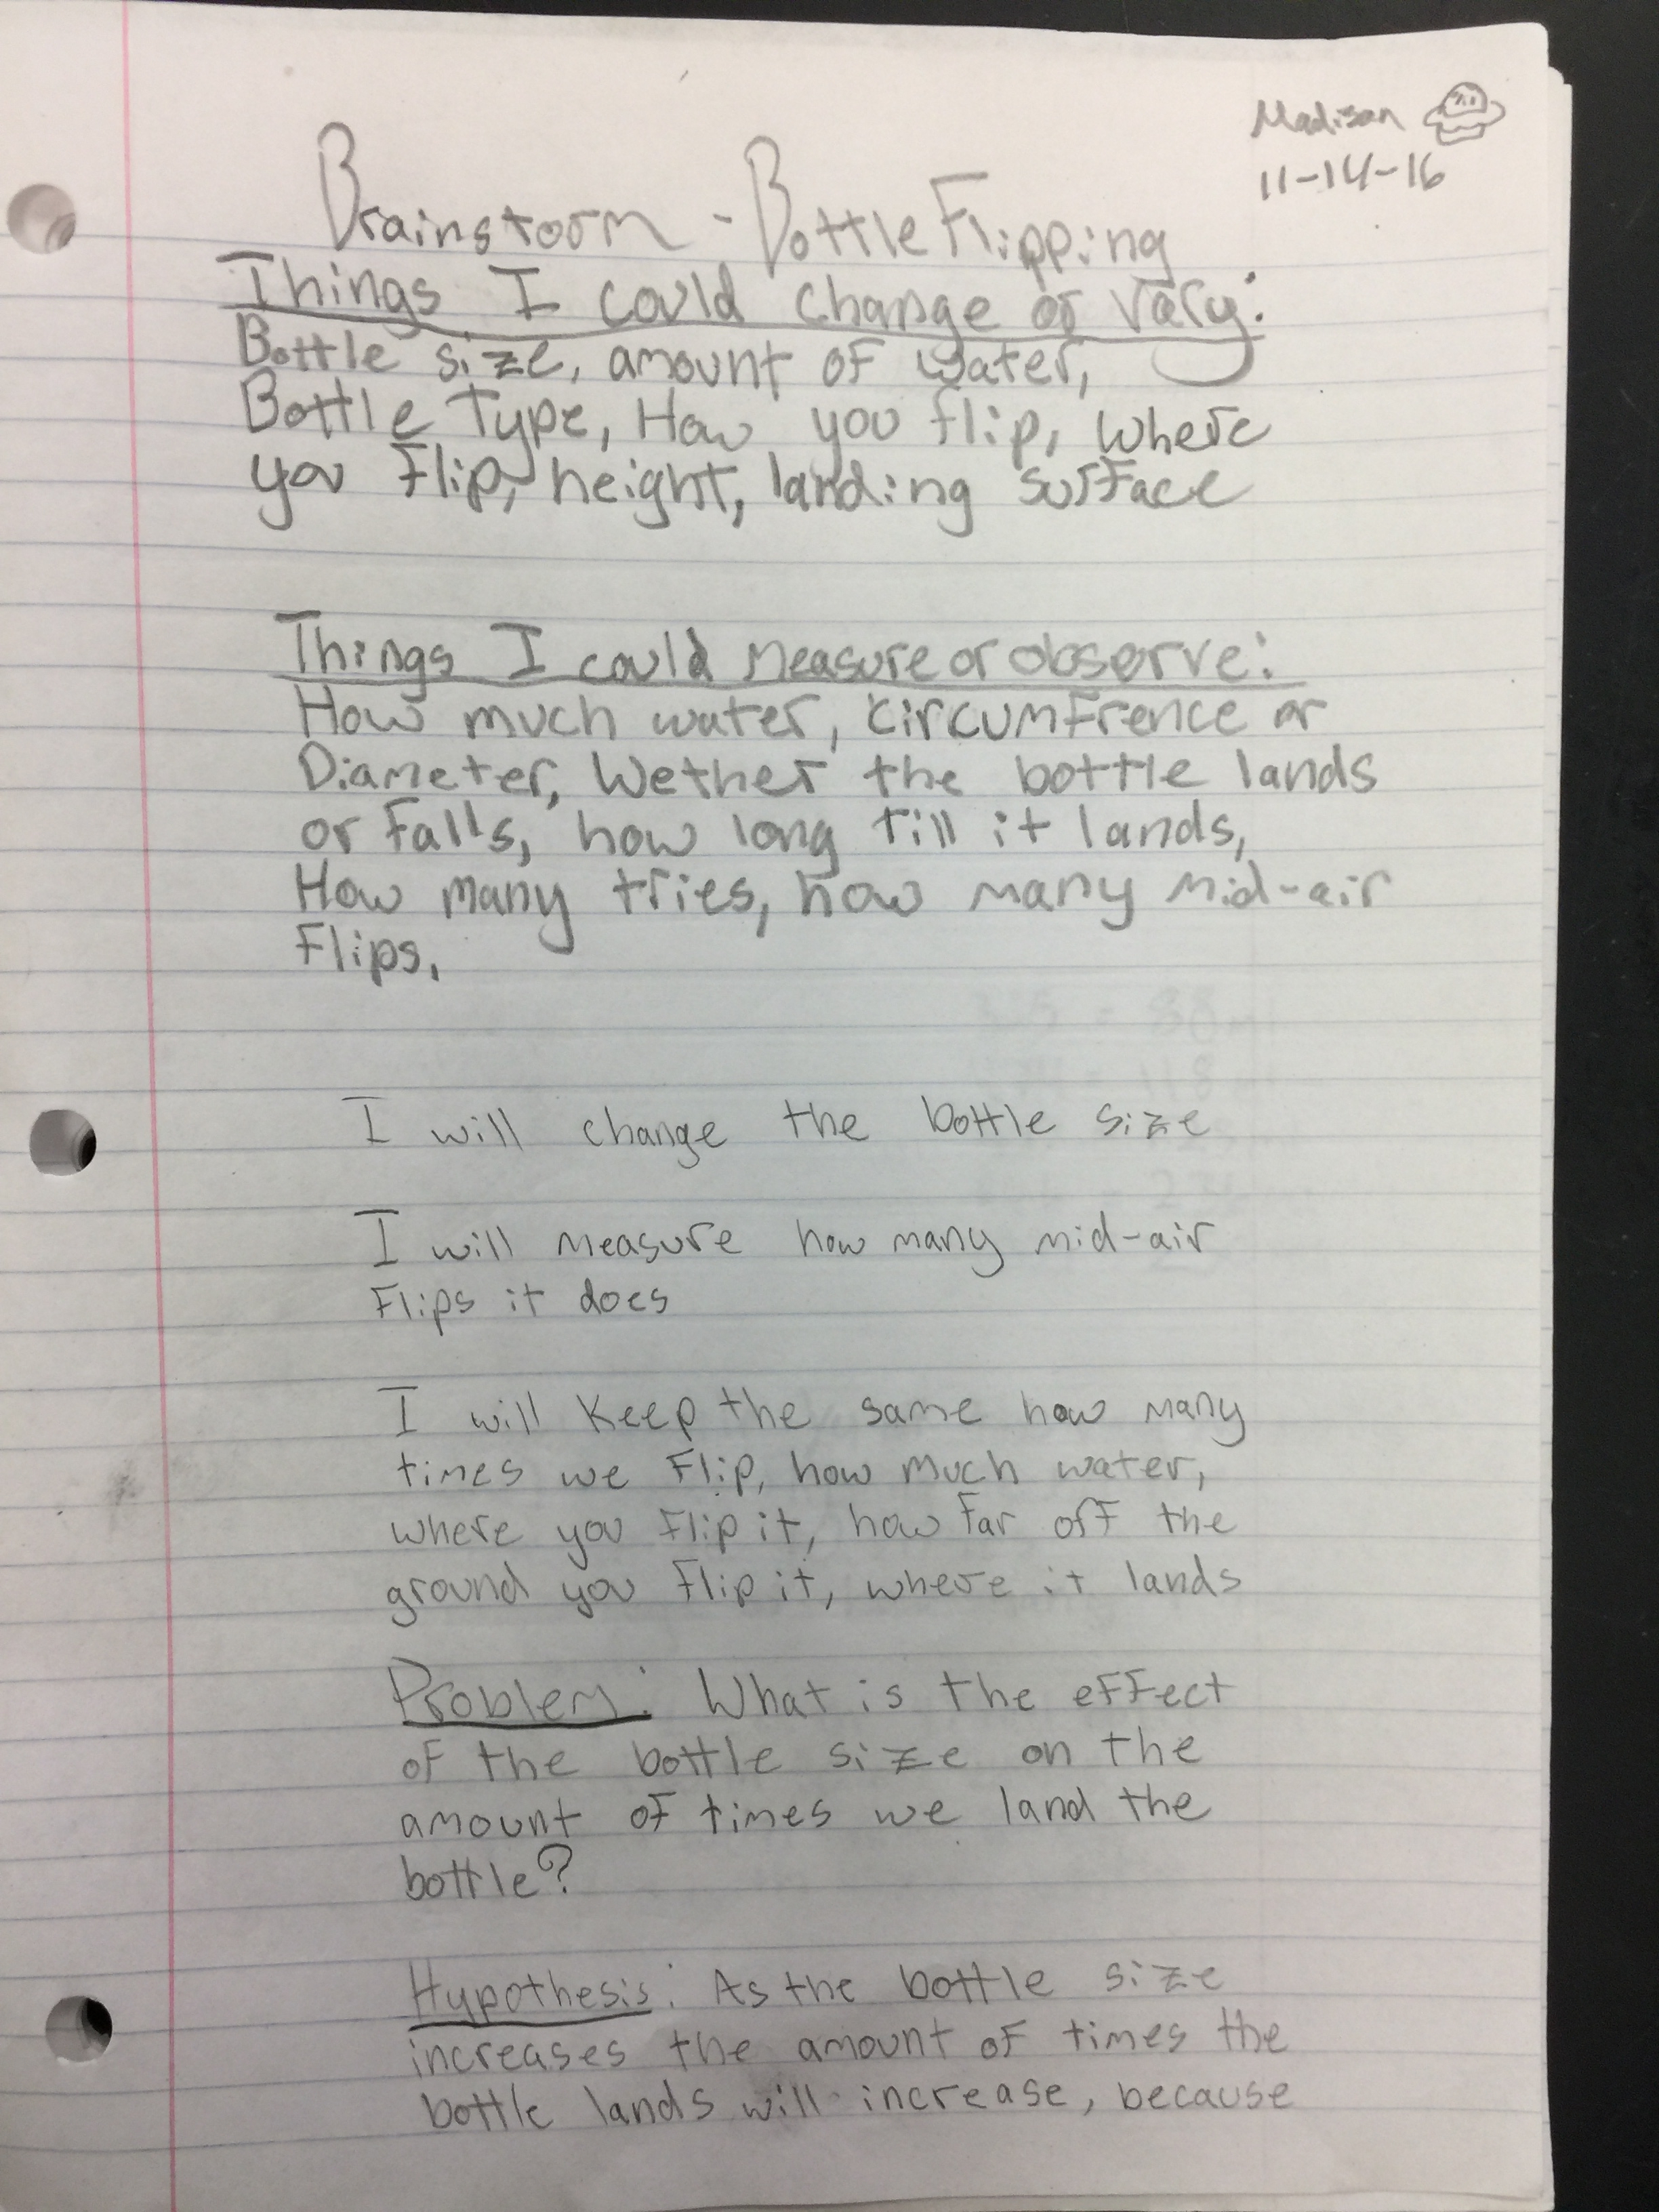 Madison
11-14-16
Brainstorm - Bottle Flipping
Things I could change or vary:
Bottle size, amount of water,
Bottle Type, How you flip, Where
you flip, height, landing surface
Things I could measure or observe:
How much water, circumfrence or
Diameter, Wether the bottle lands
or falls, how long till it lands,
How many tries, how many mid-air
flips,
I will change the bottle size
I will measure how many mid-air
flips it does
I will keep the same how many
times we flip, how much water,
where you flip it, how far off the
ground you flip it, where it lands
Problem: What is the effect
of the bottle size on the
amount of times we land the
bottle?
Hypothesis: As the bottle size
increases the amount of times the
bottle lands will increase, because